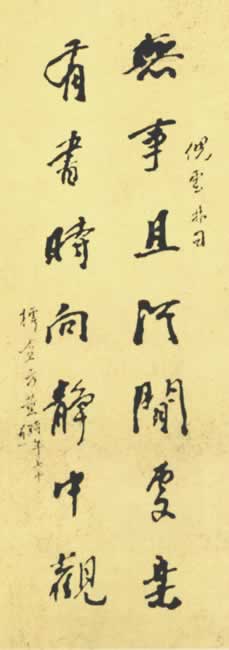 倪雲林句
無事且從閒處樂
有書時向靜中觀
時年七十